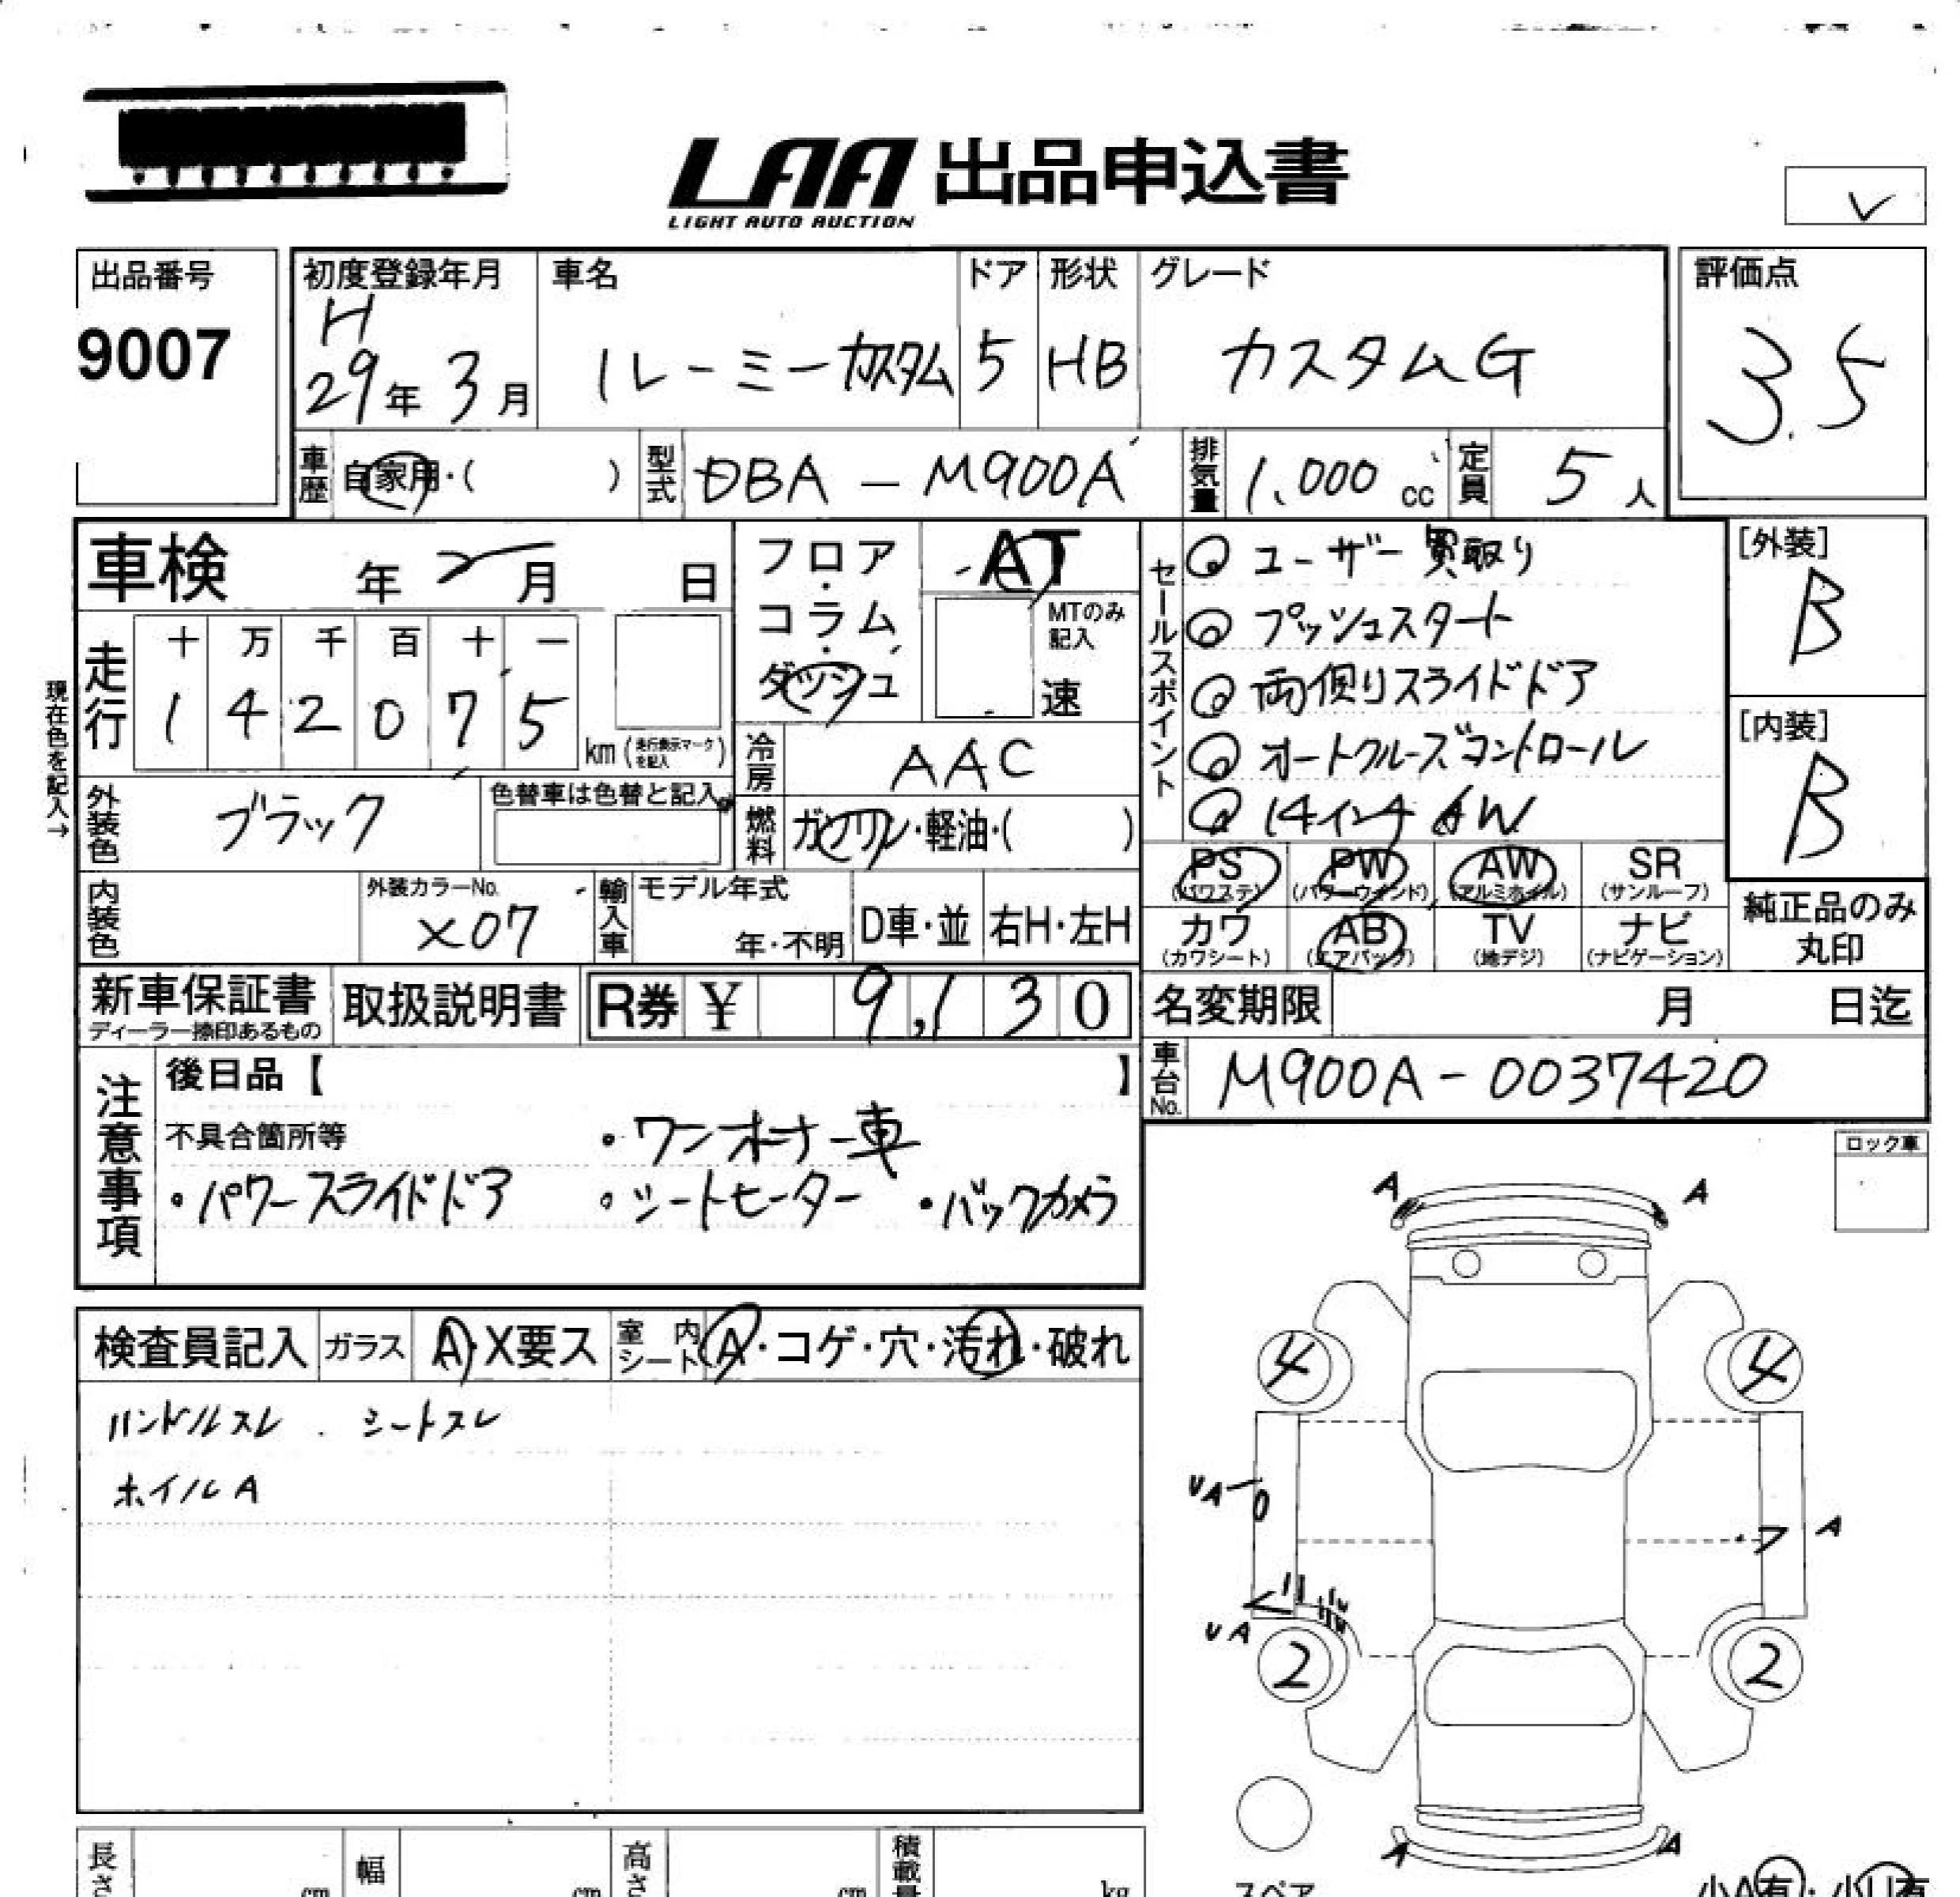 LAA 出品申込書
LIGHT AUTO AUCTION
出品番号
9007
初度登録年月
H
29年 3月
車名
ルーミーカスタム
ドア
5
形状
HB
グレード
カスタムG
評価点
3.5
車歴
自家用・( )
型式
DBA - M900A
排気量
1,000 cc
定員
5人
車検 年 2月 日
走行
十 万 千 百 十 一
1 4 2 0 7 5
km (走行表示マークを記入)
現在色を記入→
外装色
ブラック
色替車は色替と記入
内装色
外装カラーNo.
X07
輸入車
モデル年式
年・不明
D車・並
右H・左H
フロア・コラム・ダッシュ
AT
MTのみ記入
速
冷房
AAC
燃料
ガソリン・軽油・( )
セールスポイント
◎ ユーザー買取り
◎ プッシュスタート
◎ 両側スライドドア
◎ オートクルーズコントロール
◎ 14インチAW
[外装]
B
[内装]
B
PS
(パワステ)
PW
(パワーウインド)
AW
(アルミホイル)
SR
(サンルーフ)
カワ
(カワシート)
AB
(エアバッグ)
TV
(地デジ)
ナビ
(ナビゲーション)
純正品のみ
丸印
新車保証書
ディーラー捺印あるもの
取扱説明書
R券 ¥ 9,130
名変期限 月 日迄
車台No.
M900A-0037420
注意事項
後日品【 】
不具合箇所等
・ワンオーナー車
・パワースライドドア ・シートヒーター ・バックカメラ
検査員記入
ガラス
A・X要ス
室内シート
A・コゲ・穴・汚れ・破れ
ハンドルスレ . シートスレ
ホイルA
ロック車
A
A
4
4
UA
A
UA
2
2
A
A
スペア
小A有・小U有
長さ
cm
幅
cm
高さ
cm
積載量
kg